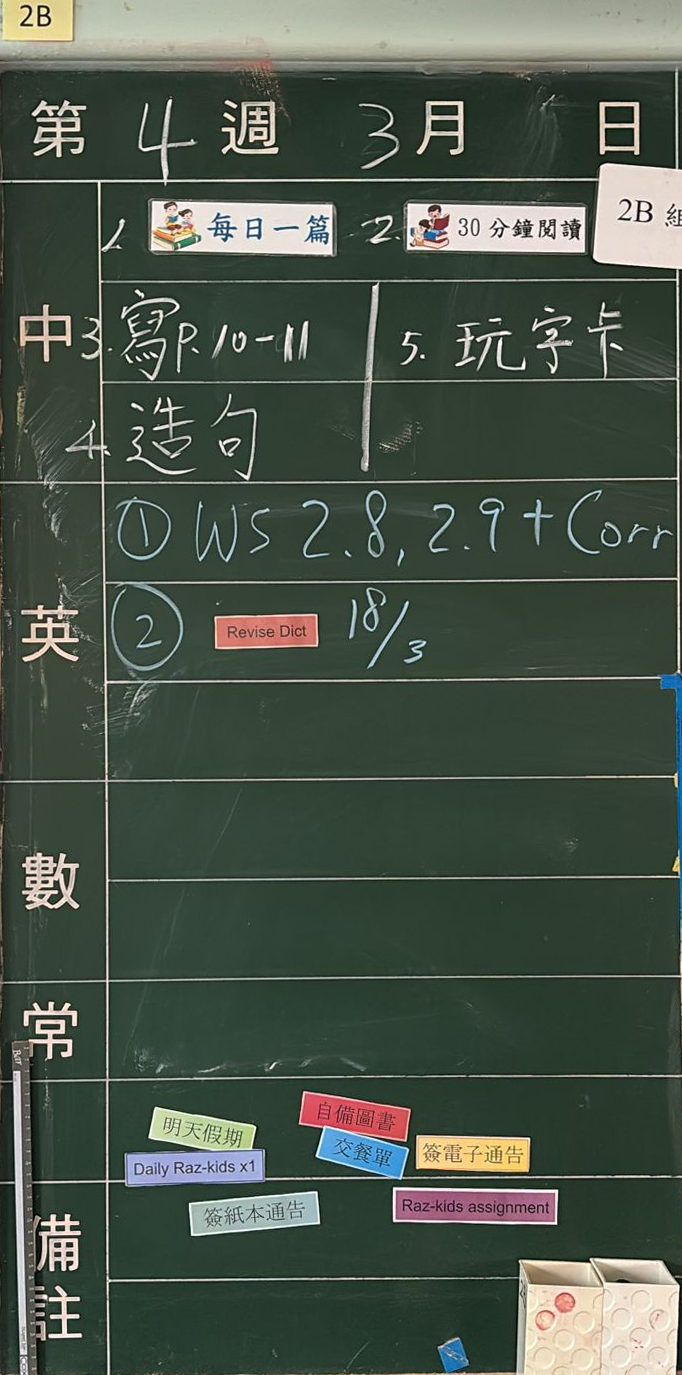 2B
第 4 週 3 月 日
2B 組
中
1. 每日一篇 2. 30分鐘閱讀
3. 寫P.10-11 5. 玩字卡
4. 造句
英
① WS 2.8, 2.9 + Corr
② Revise Dict 18/3
數
常
備註
明天假期 自備圖書
Daily Raz-kids x1 交餐單 簽電子通告
簽紙本通告 Raz-kids assignment